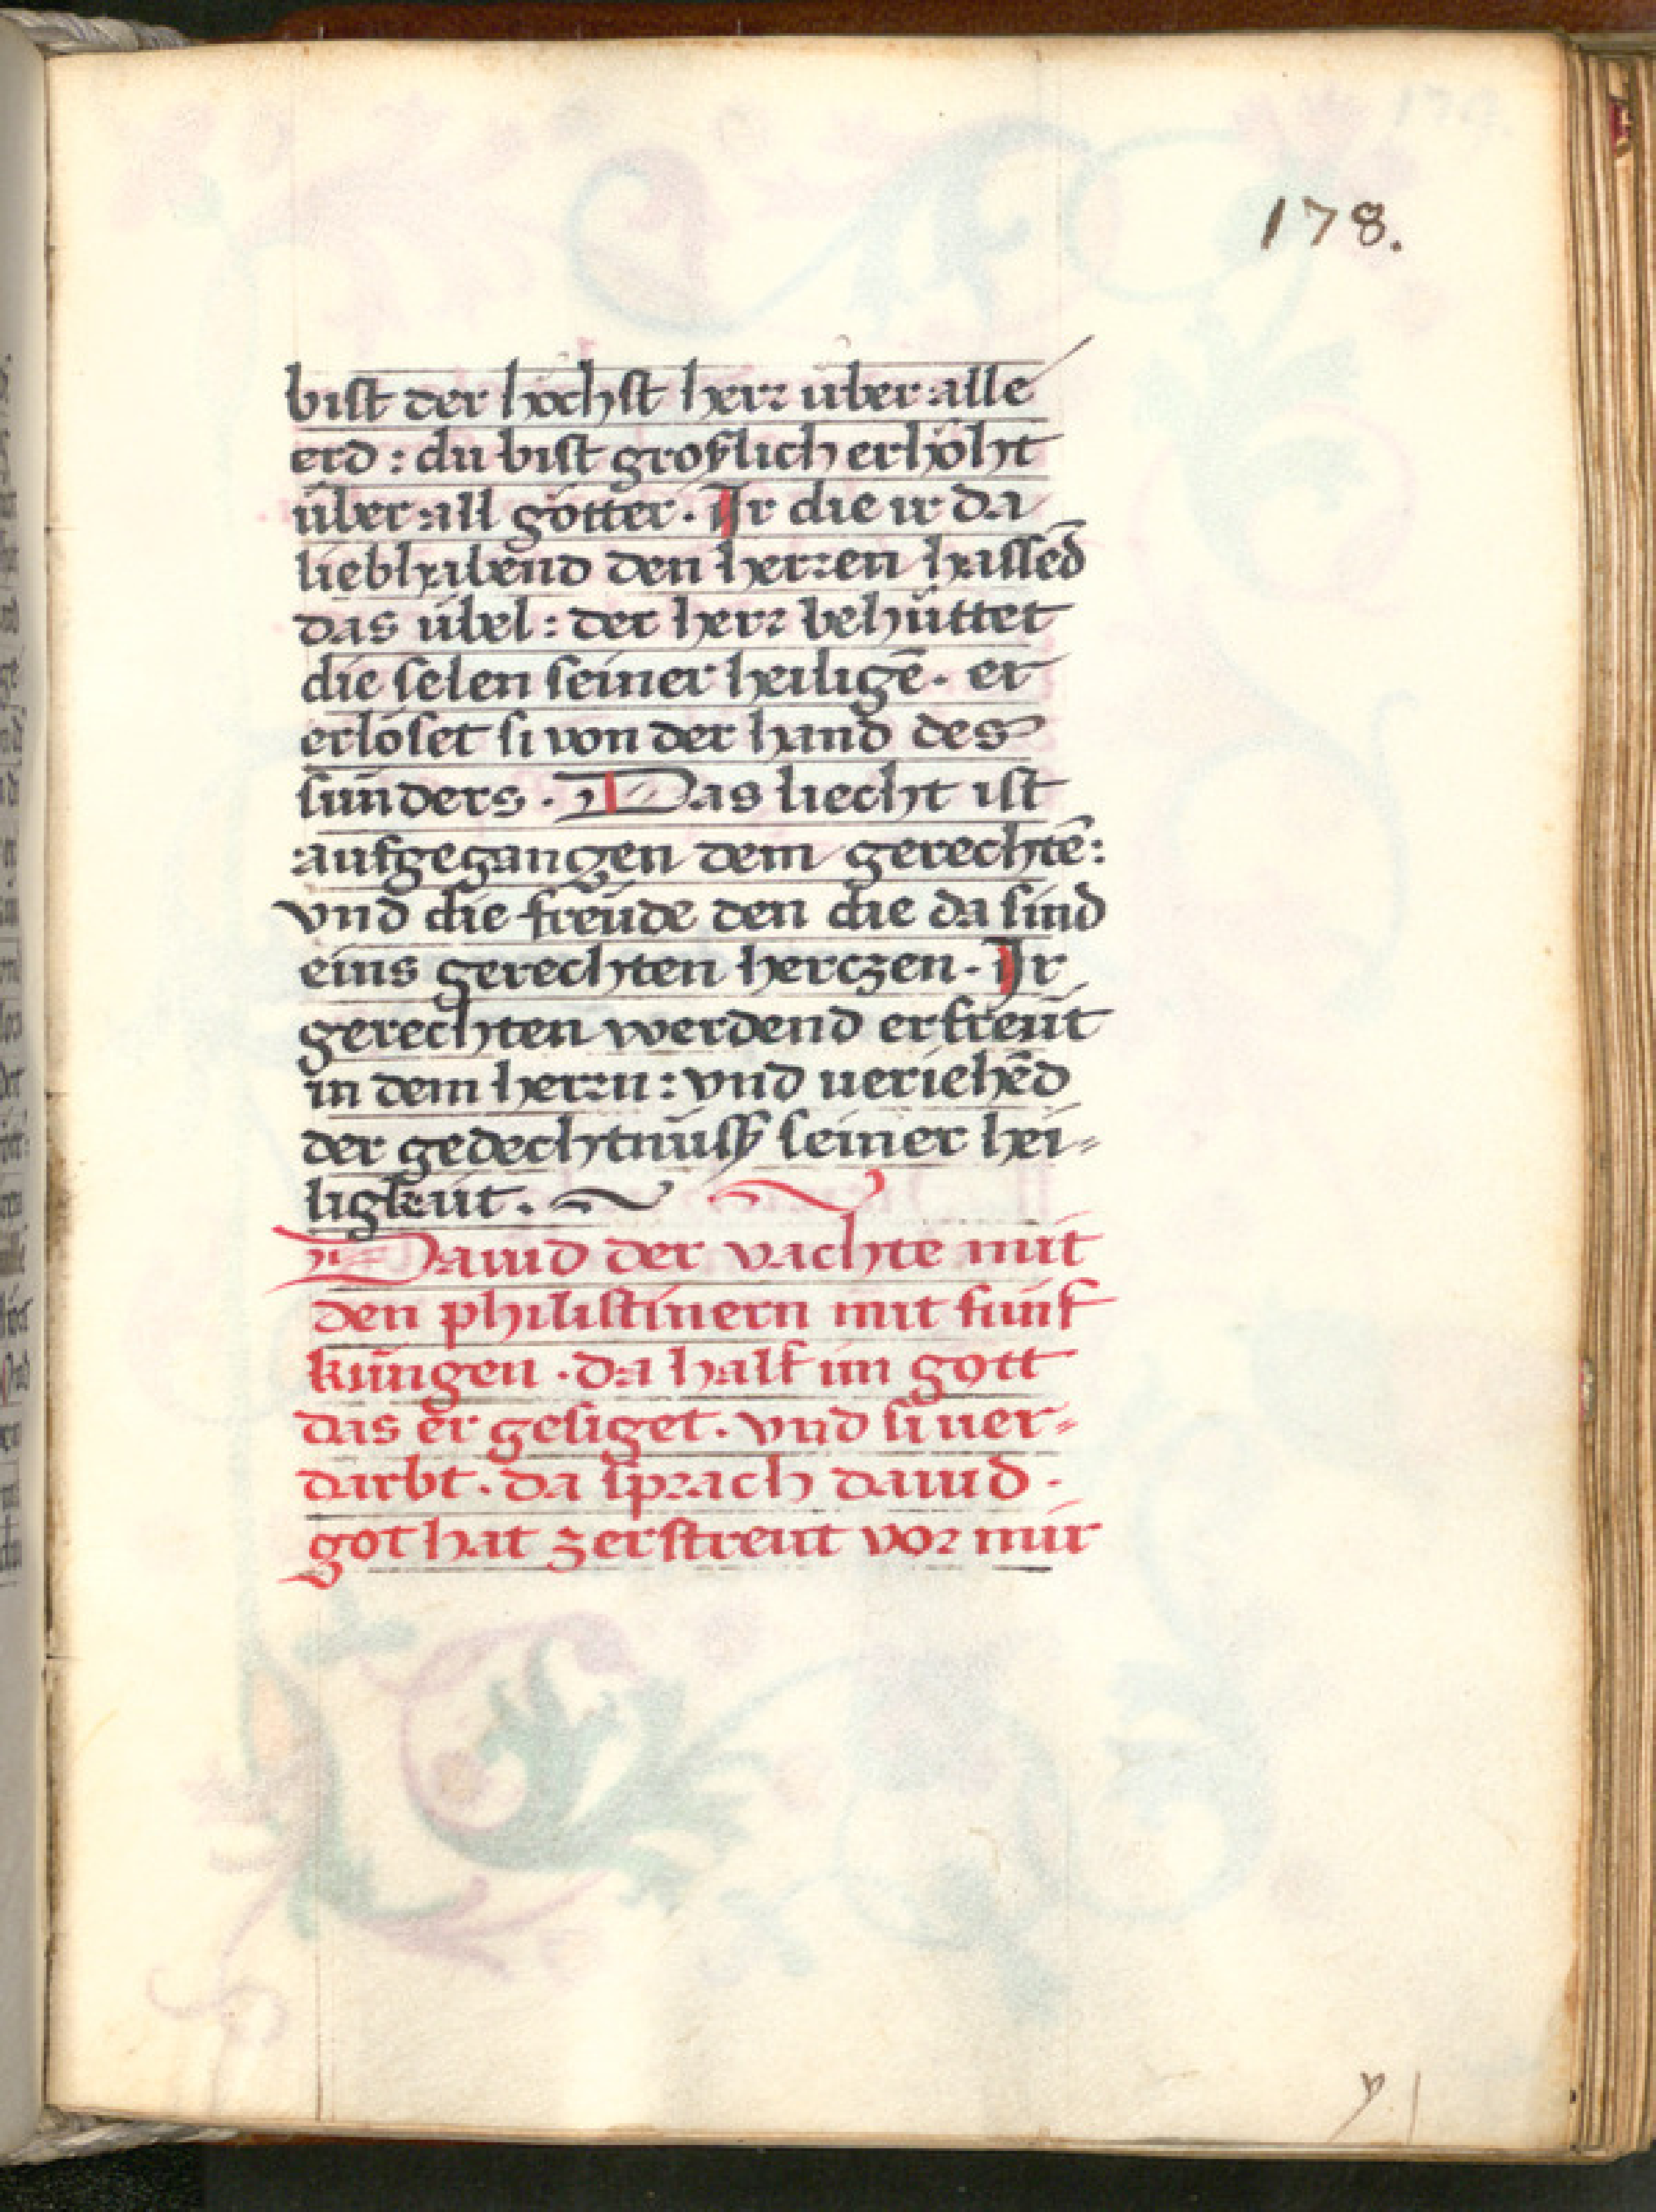 178.
bist der höchst herr über alle
erd : du bist groslich erhöht
über all götter . Ir die ir da
liebhabend den herren hassed̄
das übel : der herr behüttet
die selen seiner heiligē . er
erlöset si von der hand des
sünders . Das liecht ist
aufgegangen dem gerechtē :
vnd die freüde den die da sind
eins gerechten herczen . Ir
gerechten werdend erfreüt
in dem herrn : vnd ueriehēd
der gedechtnüss seiner hei=
ligkeit .
Dauid der vachte mit
den philistinern mit fünf
küngen . da half im gott
das er gesiget . vnd si uer=
darbt . da sprach dauid .
got hat zerstreut vor mir
y j